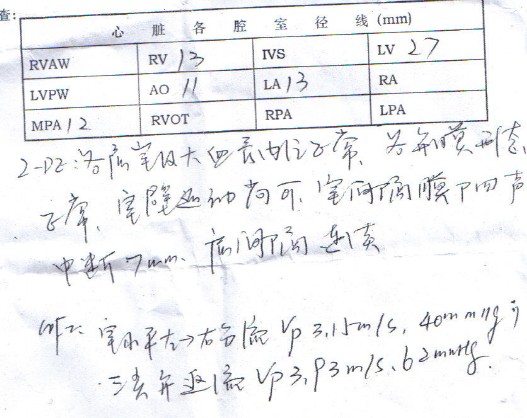 查:
心脏各腔室径线(mm)
RVAW RV 13 IVS LV 27
LVPW AO 11 LA 13 RA
MPA 12 RVOT RPA LPA
2-DE:各房室及大血管内径正常、各瓣膜形态
正常、室壁运动尚可、室间隔膜下回声
中断7mm、房间隔连续
室水平左→右分流 Vp 3.15m/s, 40mmHg
三尖瓣返流 Vp 3.93m/s, 62mmHg.